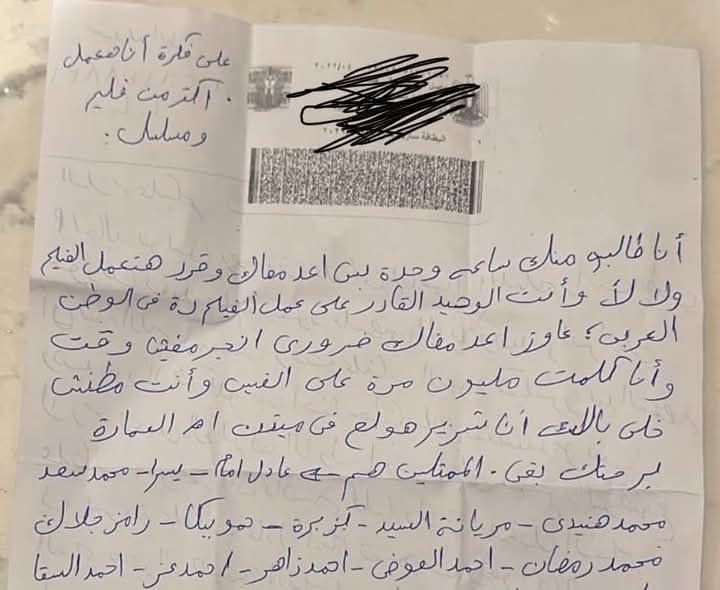 على فكرة أنا هعمل
أكتر من فليم
ومسلسل.
٢٠٢٢/٠٤
البطاقة سارية
أنا طالبه منك ساعه وحدة بس اعد معاك وقرر هتعمل الفيلم
ولا لأ وأنت الوحيد القادر على عمل الفيلم دة فى الوطن
العربى؛ عاوز اعد معاك ضرورى انجر مفيش وقت
وأنا كلمت مليون مرة على الفيس وأنت مطنش
خلى بالك أنا شرير هولع فى ميتين ام العمارة
لبرحتك بقى. الممثلين هم عادل امام - يسرا - محمد سعد
محمد هنيدى - مريانة السيد - كزبرة - حمو بيكا - رامز جلال
محمد رمضان - احمد العوضى - احمد زاهر - احمد عز - احمد السقا